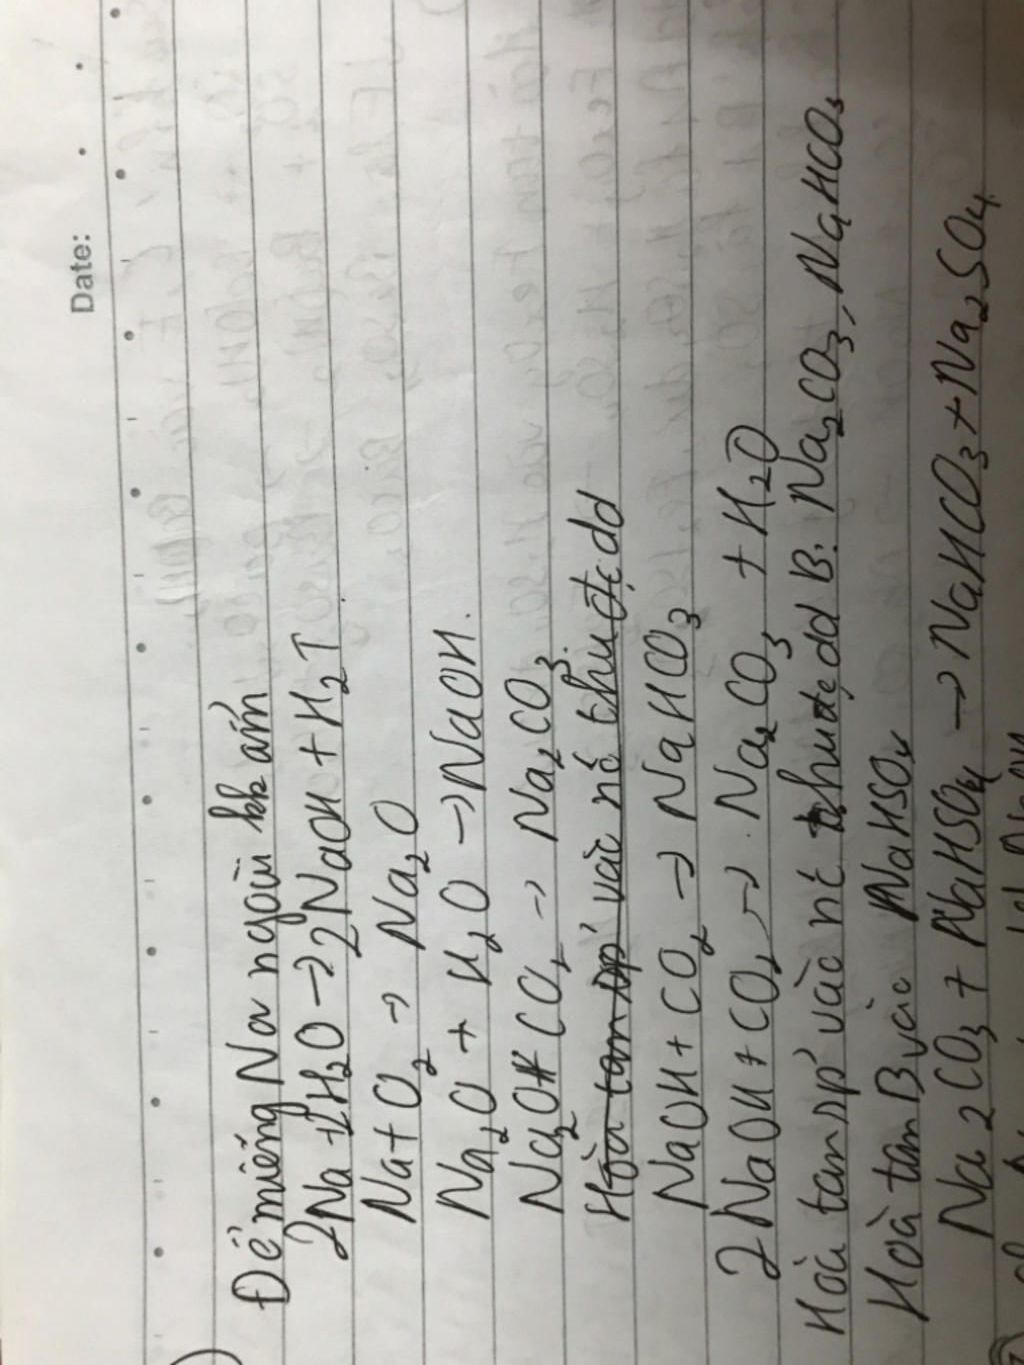 Date:
Để miếng Na ngoài kk ẩm
2Na + 2H2O → 2NaOH + H2↑
Na + O2 → Na2O
Na2O + H2O → NaOH.
Na2O + CO2 → Na2CO3.
Hòa tan sp' vào nc thu đc dd
NaOH + CO2 → NaHCO3
2NaOH + CO2 → Na2CO3 + H2O
Hòa tan sp' vào nc thu đc dd B: Na2CO3, NaHCO3
Hoà tan B vào NaHSO4
Na2CO3 + NaHSO4 → NaHCO3 + Na2SO4